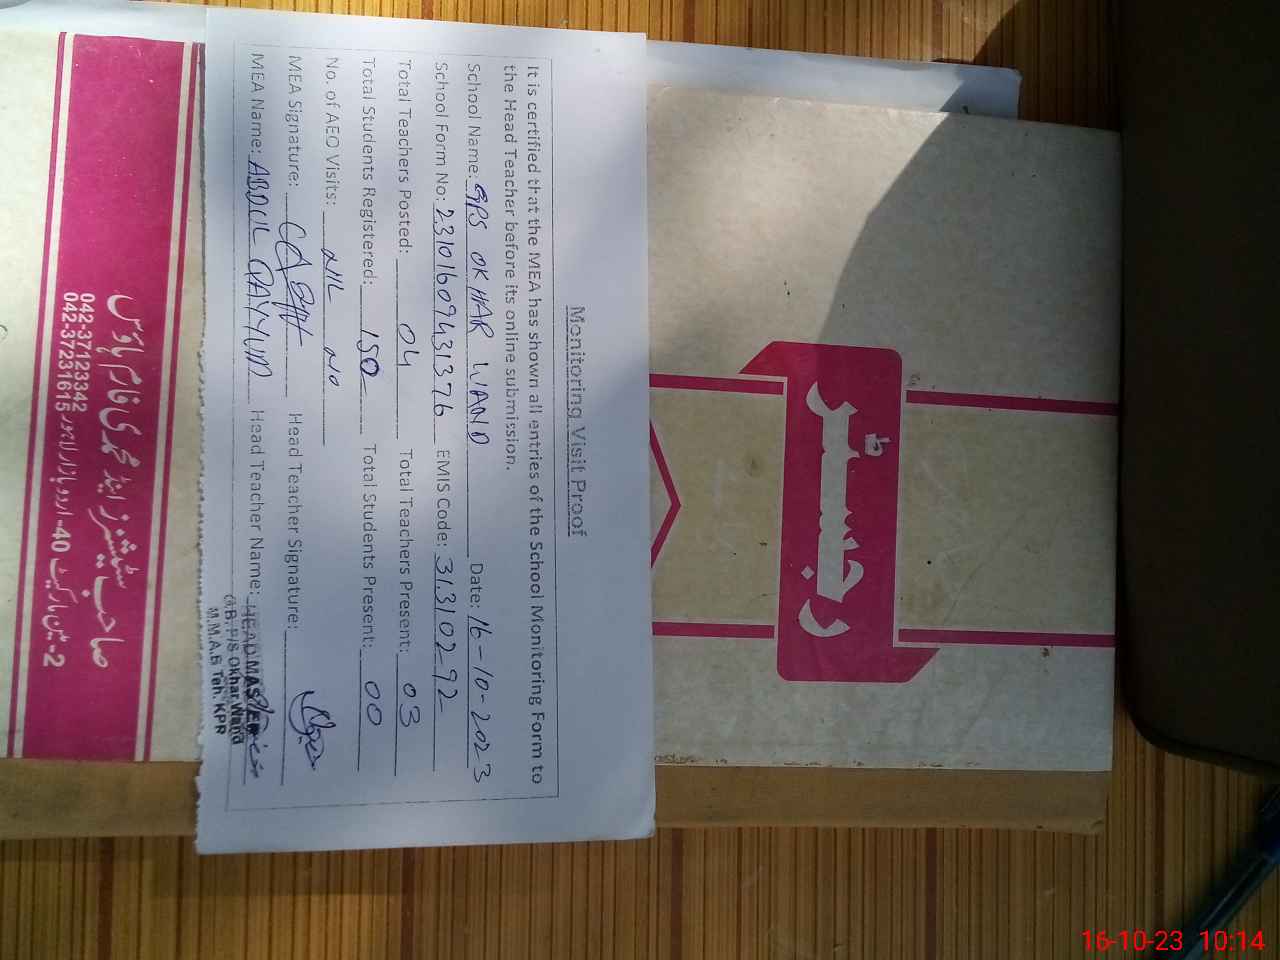 Monitoring Visit Proof
It is certified that the MEA has shown all entries of the School Monitoring Form to
the Head Teacher before its online submission.
School Name: GPS OKHAR WAND Date: 16-10-2023
School Form No: 23101609431376 EMIS Code: 31310292
Total Teachers Posted: 04 Total Teachers Present: 03
Total Students Registered: 150 Total Students Present: 00
No. of AEO Visits: NIL NO
MEA Signature: Head Teacher Signature:
MEA Name: ABDUL QAYYUM Head Teacher Name: HEAD MASTER
G.B. P/S Okhar Wand
M.M.A.B Teh. KPR
رجسٹر
صاحب سٹیشنرز اینڈ محمدی فارم ہاؤس
2-ٹین مارکیٹ 40-اردو بازار لاہور
042-37123342
042-37231615
16-10-23 10:14